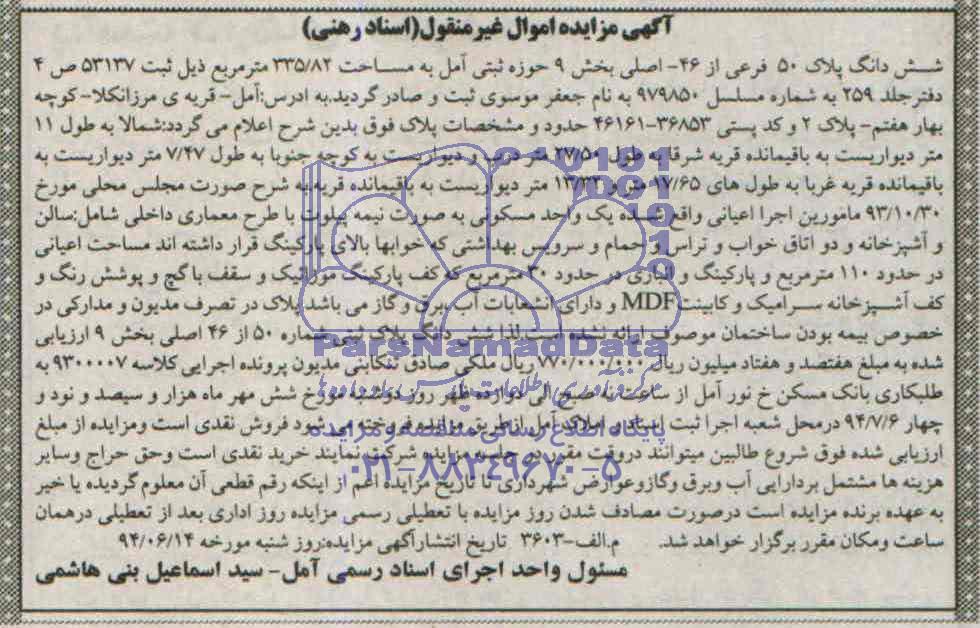 آگهی مزایده اموال غیر منقول(اسناد رهنی)
شش دانگ پلاک ۵۰ فرعی از ۴۶- اصلی بخش ۹ حوزه ثبتی آمل به مساحت ۳۳۵/۸۲ مترمربع ذیل ثبت ۵۳۱۳۷ ص ۴
دفترجلد ۲۵۹ به شماره مسلسل ۹۷۹۸۵۰ به نام جعفر موسوی ثبت و صادر گردید.به ادرس:آمل- قریه ی مرزانکلا- کوچه
بهار هفتم- پلاک ۲ و کد پستی ۳۶۸۵۳-۴۶۱۶۱ حدود و مشخصات پلاک فوق بدین شرح اعلام می گردد:شمالا به طول ۱۱
متر دیواریست به باقیمانده قریه شرقا به طول ۲۷/۵۰ متر درب و دیواریست به کوچه جنوبا به طول ۷/۴۷ متر دیواریست به
باقیمانده قریه غربا به طول های ۱۷/۶۵ متر و ۱۳/۳۳ متر دیواریست به باقیمانده قریه.به شرح صورت مجلس محلی مورخ
۹۳/۱۰/۳۰ مامورین اجرا اعیانی واقع شده یک واحد مسکونی به صورت نیمه پیلوت با طرح معماری داخلی شامل:سالن
و آشپزخانه و دو اتاق خواب و تراس و حمام و سرویس بهداشتی که خوابها بالای پارکینگ قرار داشته اند مساحت اعیانی
در حدود ۱۱۰ مترمربع و پارکینگ و انباری در حدود ۳۰ مترمربع که کف پارکینگ موزائیک و سقف با گچ و پوشش رنگ و
کف آشپزخانه سرامیک و کابینت MDF و دارای انشعابات آب ،برق و گاز می باشد.پلاک در تصرف مدیون و مدارکی در
خصوص بیمه بودن ساختمان موصوف ارائه نشده است.لذا شش دانگ پلاک ثبتی شماره ۵۰ از ۴۶ اصلی بخش ۹ ارزیابی
شده به مبلغ هفتصد و هفتاد میلیون ریال ۷۷۰/۰۰۰/۰۰۰ ریال ملکی صادق تنکابنی مدیون پرونده اجرایی کلاسه ۹۳۰۰۰۰۷ به
طلبکاری بانک مسکن خ نور آمل از ساعت نه صبح الی دوازده ظهر روز دوشنبه مورخ شش مهر ماه هزار و سیصد و نود و
چهار ۹۴/۷/۶ درمحل شعبه اجرا ثبت اسناد و املاک آمل ازطریق مزایده فروخته می شود فروش نقدی است ومزایده از مبلغ
ارزیابی شده فوق شروع طالبین میتوانند دروقت مقرر در جلسه مزایده شرکت نمایند خرید نقدی است وحق حراج وسایر
هزینه ها مشتمل بردارایی آب وبرق وگازوعوارض شهرداری تا تاریخ مزایده اعم از اینکه رقم قطعی آن معلوم گردیده یا خیر
به عهده برنده مزایده است درصورت مصادف شدن روز مزایده با تعطیلی رسمی مزایده روز اداری بعد از تعطیلی درهمان
ساعت ومکان مقرر برگزار خواهد شد. م.الف-۳۶۰۳ تاریخ انتشارآگهی مزایده:روز شنبه مورخه ۹۴/۰۶/۱۴
مسئول واحد اجرای اسناد رسمی آمل- سید اسماعیل بنی هاشمی
ParsNamadData
پایگاه اطلاع رسانی مناقصه و مزایده
۰۲۱-۸۸۳۴۹۶۷۰-۵